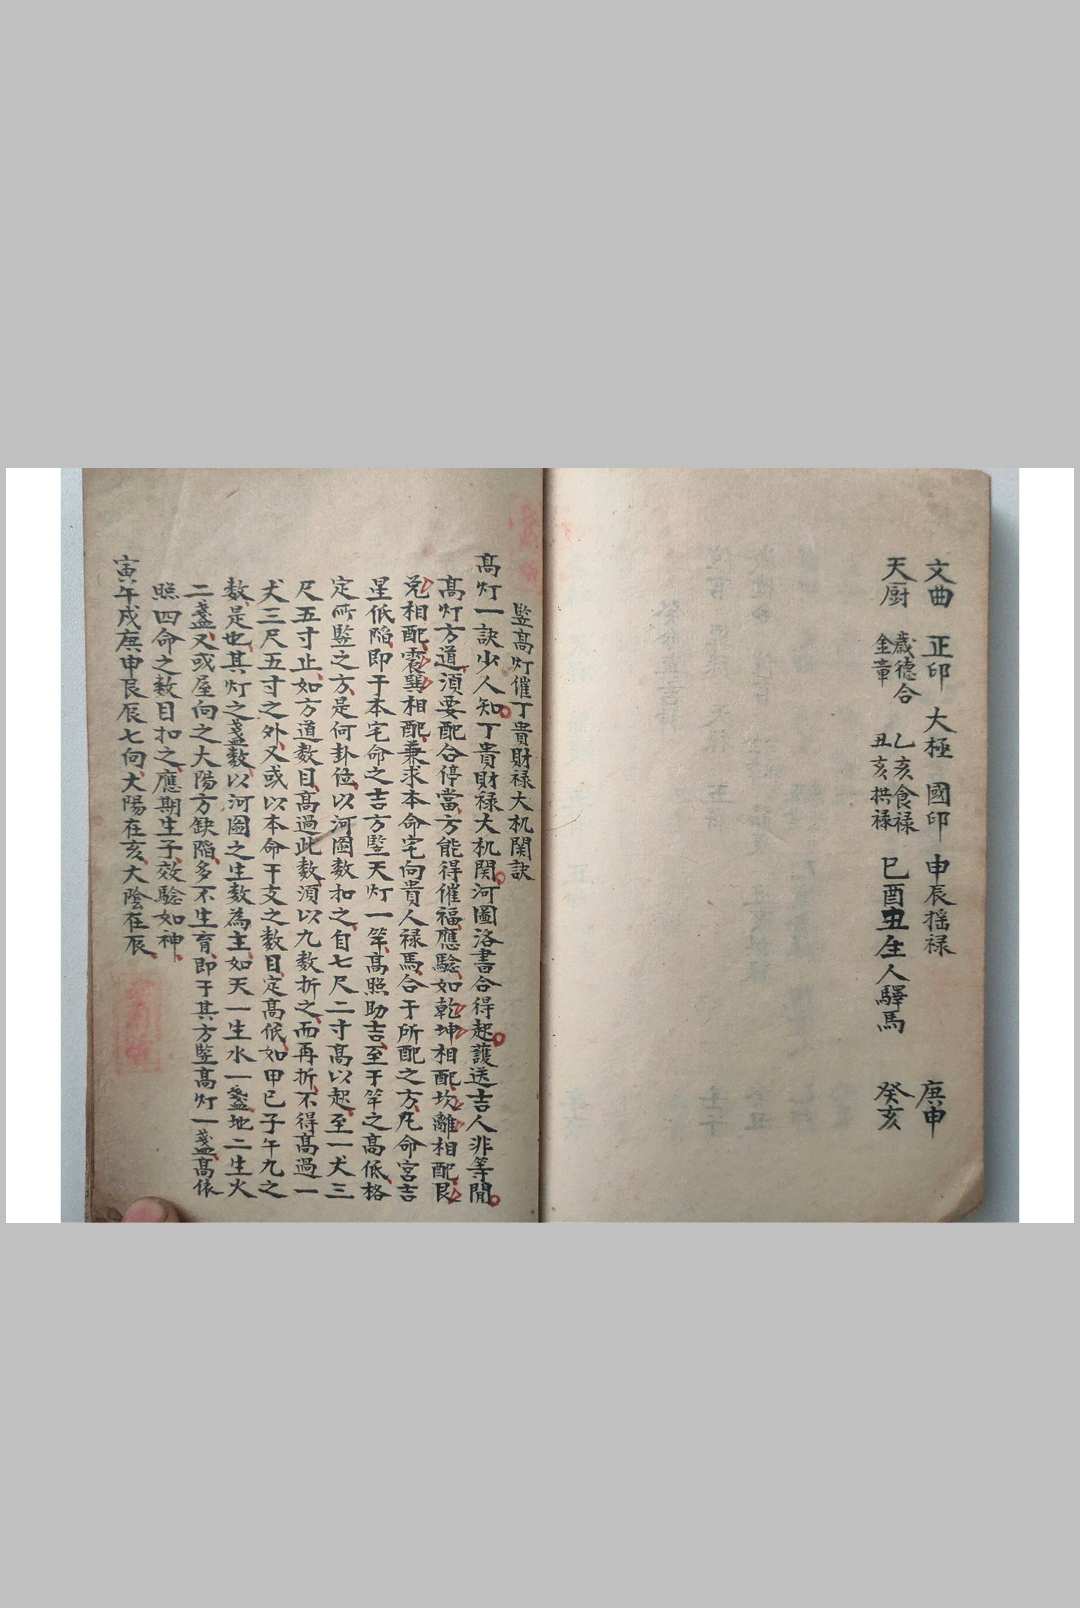 文曲 正印 大極 國印 申辰搖祿 庚申
天厨 歲德合 乙亥食祿 巳酉丑生人驛馬 癸亥
金章 丑亥拱祿
監高灯催丁貴財禄大机関訣
高灯一訣少人知丁貴財禄大机関河圖洛書合得起護送吉人非等閒
高灯方道湏要配合停當方能得催福應驗如乾坤相配坎離相配艮
兌相配震巽相配兼求本命宅向貴人禄馬合于所配之方凡命宮吉
星低陷即于本宅命之吉方監天灯一竿高照助吉至于竿之高低格
定所監之方是何卦位以河圖数扣之自七尺二寸高以起至一丈三
尺五寸止如方道数目高過此数湏以九数折之而再折不得高過一
丈三尺五寸之外又或以本命干支之数目定高低如甲巳子午九之
数是也其灯之盞数以河圖之生数為主如天一生水一盞地二生火
二盞又或屋向之大陽方缺陷多不生育即于其方監高灯一盞高俵
照四命之数目扣之應期生子效驗如神
寅午戌庚申艮辰七向大陽在亥大陰在辰